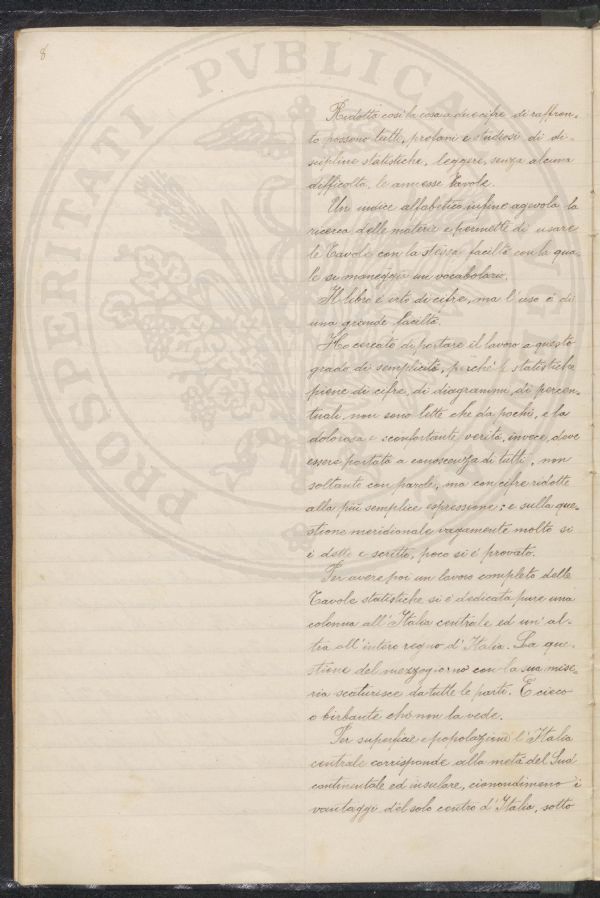 8
Ridotta così la cosa a due cifre di raffron-
to possono tutti, profani e studiosi di di-
scipline statistiche, leggere, senza alcuna
difficoltà, le annesse Tavole.
Un indice alfabetico infine agevola la
ricerca delle materie e permette di usare
le Tavole con la stessa facilità con la qua-
le si maneggia un vocabolario.
Il libro è irto di cifre, ma l'uso è di
una grande facilità.
Ho cercato di portare il lavoro a questo
grado di semplicità, perchè le statistiche
piene di cifre, di diagrammi, di percen-
tuali non sono lette che da pochi, e la
dolorosa e sconfortante verità, invece, deve
essere portata a conoscenza di tutti, non
soltanto con parole, ma con cifre ridotte
alla più semplice espressione: e sulla que-
stione meridionale vagamente molto si
è detto e scritto, poco si è provato.
Per avere poi un lavoro completo delle
Tavole statistiche si è dedicata pure una
colonna all'Italia centrale ed un'al-
tra all'intero regno d'Italia. La que-
stione del mezzogiorno con la sua mise-
ria scaturisce da tutte le parti. È cieco
o birbante chi non la vede.
Per superficie e popolazione l'Italia
centrale corrisponde alla metà del Sud
continentale ed insulare, cionondimeno i
vantaggi del solo centro d'Italia, sotto
PROSPERITATI PVBLICAE